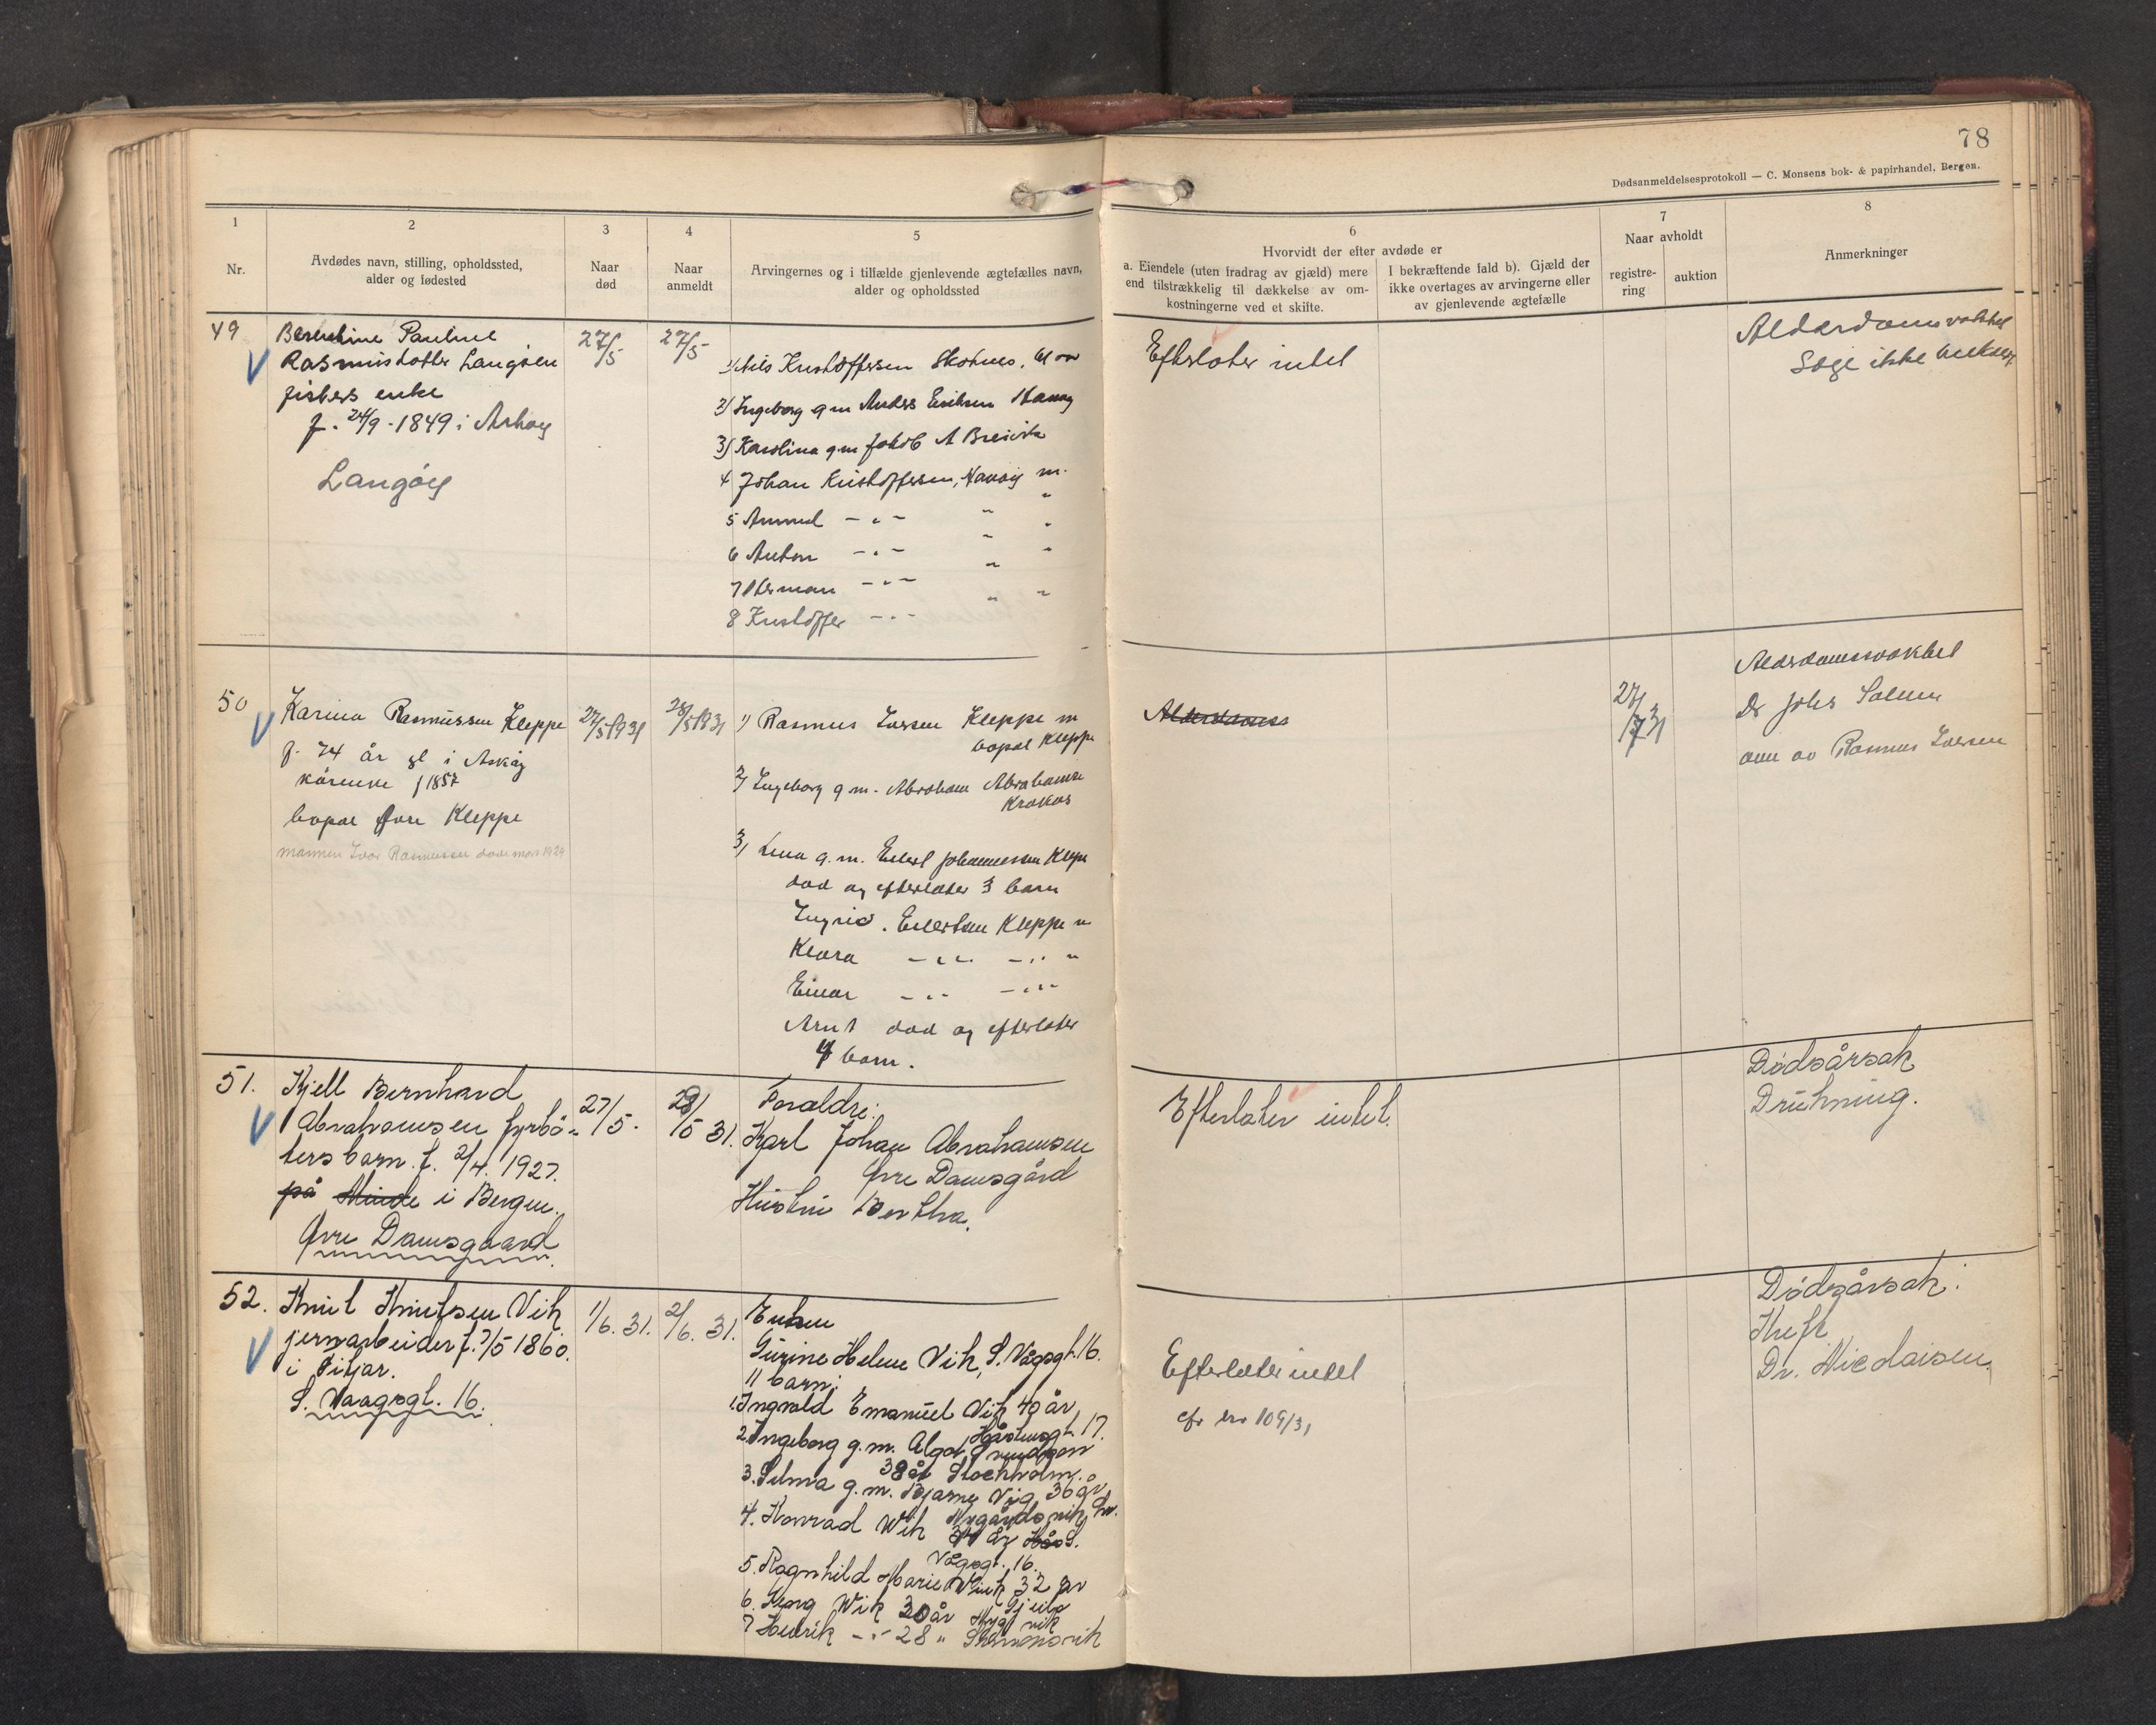 78
Dødsanmeldelsesprotokoll — C. Monsens bok- & papirhandel, Bergen.
1
Nr.
2
Avdødes navn, stilling, opholdssted,
alder og fødested
3
Naar
død
4
Naar
anmeldt
5
Arvingernes og i tilfælde gjenlevende ægtefælles navn,
alder og opholdssted
6
Hvorvidt der efter avdøde er
a. Eiendele (uten fradrag av gjæld) mere
end tilstrækkelig til dækkelse av om-
kostningerne ved et skifte.
I bekræftende fald b). Gjæld der
ikke overtages av arvingerne eller
av gjenlevende ægtefælle
7
Naar avholdt
registre-
ring
auktion
8
Anmerkninger
49
Pauline
Rasmusdatter Langøen
fiskers enke
f. 24/9 - 1849 i Askøy
Langøy
27/5
27/5
1) Nils Kristoffersen
2) Ingeborg g m Anders Eriksen
3) Karolina g m Jakob A
4 Johan Kristoffersen, m.
5 - " - " "
6 Anton - " - " "
7 Herman - " - " "
8 Kristoffer - " - " "
Efterlater intet
Alderdomsvakkel
ikke
50
Karina Rasmussen Kleppe
f. 74 år gl i Askøy
f 1857
bopæl Øvre Kleppe
mannen Ivar Rasmussen døde mars 1929
27/5 1931
28/5 1931
1) Rasmus Iversen Kleppe m
bopæl Kleppe
2) Ingeborg g m. Abraham Abrahamsen
Krokås
3) Lena g. m. Eilert Johannessen Kleppe
død og efterlater 3 barn
Ingrid. Eilertsen Kleppe m
Klara - " - - " - "
Einar - " - - " -
død og efterlater
4 barn.
Alderdoms
Alderdomsvakkel
Dr Johs
av Rasmus Iversen
51.
Kjell Bernhard
Abrahamsen fyrbø-
ters barn. f. 2/4. 1927.
på Minde i Bergen.
Øvre Damsgaard.
27/5.
29/5 31.
Foraldre:
Karl Johan Abrahamsen
Øvre Damsgård
Hustru Bertha.
Efterlater intet.
Dødsårsak
Drukning.
52.
Knut Knutsen Vik
jernarbeider f. 7/5 1860.
i Fitjar.
S. Vaagsgt. 16.
1/6. 31.
2/6. 31.
Enken
Gurine Helene Vik, S. Vågsgt. 16.
11 barn:
1. Ingvald Emanuel Vik 40 år,
17.
2. Ingeborg g. m. Algot
38 år Stockholm.
3. Selma g. m. Bjarne Vig 36 år,
Nygårdsvik
4. Konrad Wik
34 år S.
Vågsgt. 16.
5. Ragnhild Marie Wiik 32 år
6. Georg Wik 30 år
7 Henrik - " - 28 "
Efterlater intet
cfr nr 109/31
Dødsårsak:
Kreft
Dr. Nicolaisen.